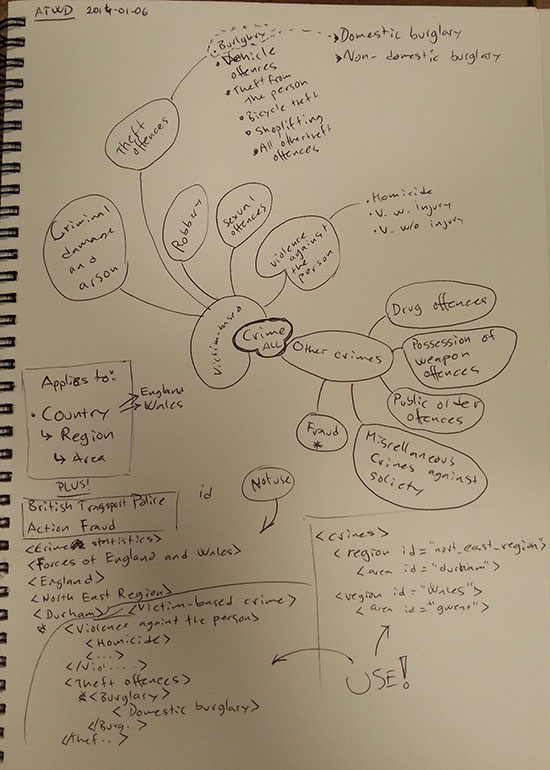 ATWD 2014-01-06
• Burlgary
→ Domestic burglary
→ Non-domestic burglary
• Vehicle
offences
• Theft from
the person
• Bicycle theft
• Shoplifting
• All other theft
offences
Theft
offences
Criminal
damage
and
arson
Robbery
Sexual
offences
Violence
against
the
person
• Homicide
• V. w. injury
• V. w/o injury
Victim-based
Crime
ALL
Other crimes
Drug offences
Possession of
weapon
offences
Public order
offences
Miscellaneous
Crimes against
society
Fraud
*
Applies to:
• Country
England
Wales
↳ Region
↳ Area
PLUS!
British Transport Police
Action Fraud
id
Not use
<Crime statistics>
<Forces of England and Wales>
<England>
<North East Region>
<Durham>
<Victim-based crime>
* <Violence against the person>
<Homicide>
<...>
</Viol.....>
<Theft offences>
*<Burglary>
<Domestic burglary>
</Burg..>
</Thef..>
<crimes>
<region id="nort_east_region">
<area id="durham">
<region id="Wales">
<area id="gwent">
USE!